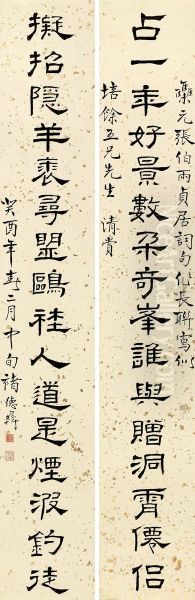 占一年好景數朵奇峯誰與贈洞霄僊侶
擬招隱羊裘尋盟鷗社人道是煙波釣徒
集元張伯雨貞居詞句作長聯寫似
培餘五兄先生 清賞
癸酉年春二月中旬 褚德彝